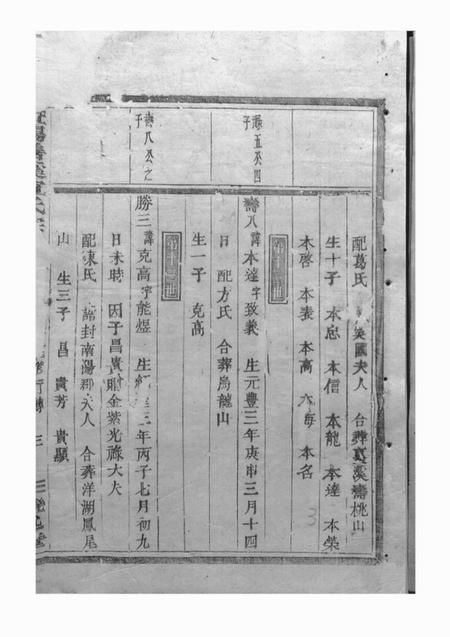 配葛氏 英國夫人 合葬葛溪濤桃山
生十子 本忠 本信 本龍 本達 本榮
本啓 本表 本高 本海 本名
壽五公四
子
壽八諱本達字致義 生元豐三年庚申三月十四
日 配方氏 合葬烏龍山
生一子 克高
壽八公之
子
勝三諱克高字能煜 生紹 三年丙子七月初九
日未時 因子昌貴賜金紫光祿大夫
配陳氏 誥封南陽郡夫人 合葬洋湖鳳尾
山 生三子 昌 貴芳 貴顯
3